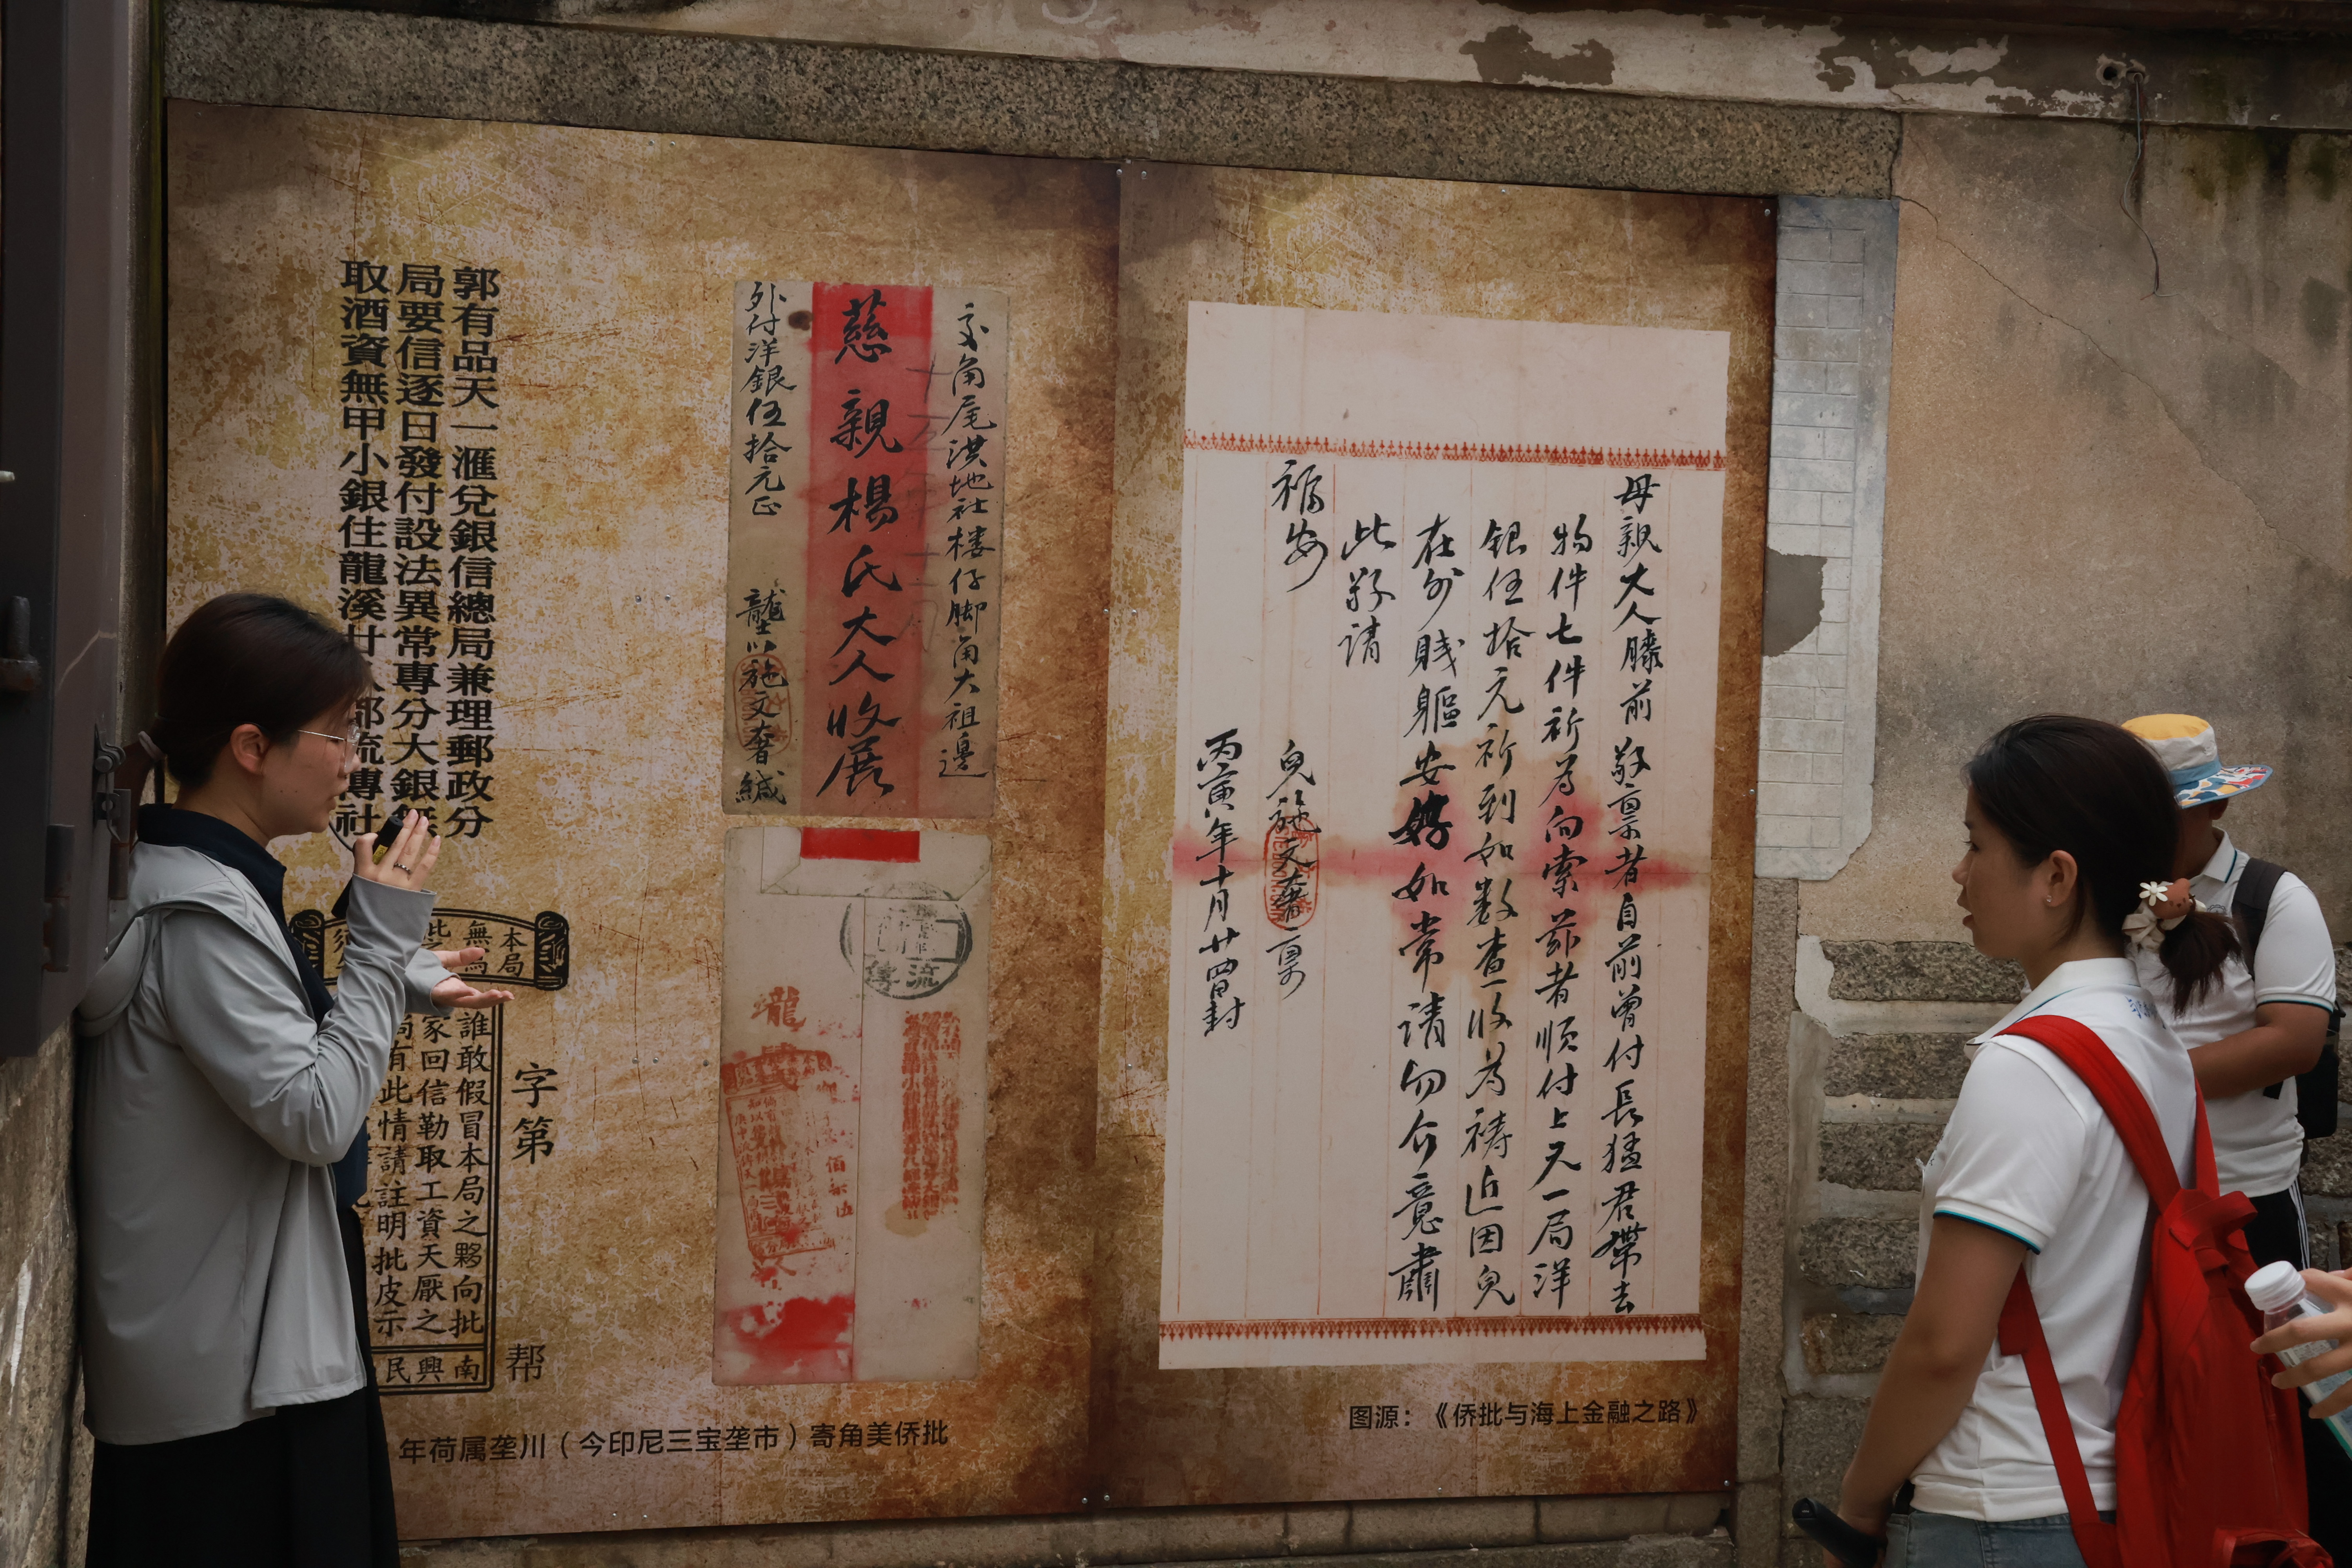 郭有品天一滙兌銀信總局兼理郵政分
局要信逐日發付設法異常專分大銀無
取酒資無甲小銀住龍溪廿 郡流傳社
本局
無爲
此
誰敢假冒本局之夥向批
家回信勒取工資天厭之
局有此情請註明批皮示
南
興
民
字第
帮
交角尾洪地社楼仔脚角大祖邊
慈親楊氏大人收展
外付洋銀伍拾元正
壟川施文奢緘
流傳
壠
母親大人膝前敬禀者自前曾付長猛君帶去
物件七件祈为向索茲者順付上天一局洋
銀伍拾元祈到如数查收为祷近因兒
在外賤軀安好如常請勿介意肅
此敬請
福安
兒施文奢禀
丙寅年十月廿四日封
年荷属垄川（今印尼三宝垄市）寄角美侨批
图源：《侨批与海上金融之路》